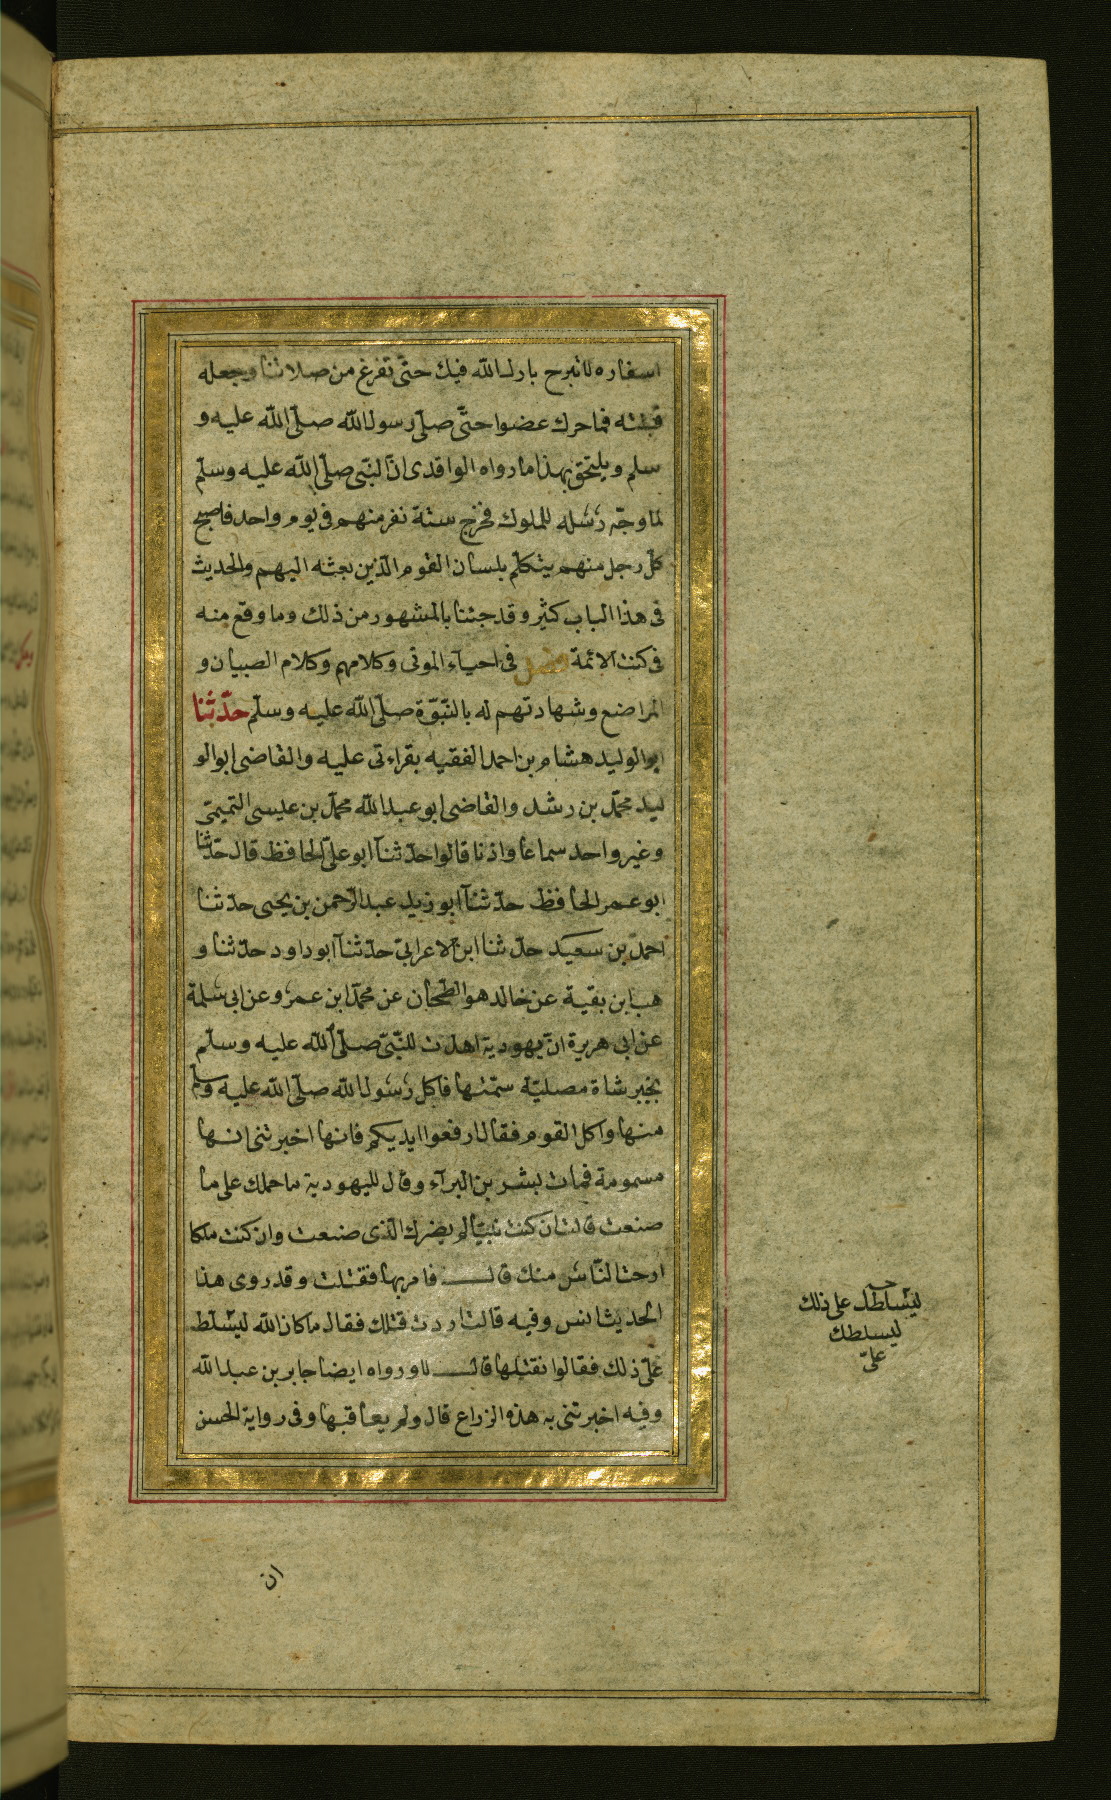 اسفاره لا تبرح بارك الله فيك حتّى تفرغ من صلاتنا وجعله
قبلته فما حرك عضوا حتّى صلّى رسول الله صلّى الله عليه و
سلم ويلتحق بهذا ما رواه الواقدى انّ النبى صلّى الله عليه وسلّم
لما وجّه رسله للملوك فخرج ستة نفر منهم فى يوم واحد فاصبح
كلّ رجل منهم يتكلّم بلسان القوم الّذين بعثه اليهم والحديث
فى هذا الباب كثير وقد جئنا بالمشهور من ذلك وما وقع منه
فى كتب الائمة فصل فى احيآء الموتى وكلامهم وكلام الصبيان و
المراضع وشهادتهم له بالنّبوّة صلّى الله عليه وسلّم حدّثنا
ابوالوليد هشام بن احمد الفقيه بقراءتى عليه والقاضى ابوالو
ليد محمّد بن رشد والقاضى ابو عبد الله محمّد بن عيسى التميمىّ
وغير واحد سماعا واذنا قالوا حدّثنآ ابو علىّ الحافظ قال حدّثنا
ابو عمر الحافظ حدّثنآ ابو زيد عبد الرّحمن بن يحيى حدّثنا
احمد بن سعيد حدّثنا ابن الاعرابىّ حدّثنآ ابو داود حدّثنا و
هب ابن بقية عن خالد هو الطّحّان عن محمّد ابن عمرو عن ابى سلمة
عن ابى هريرة انّ يهودية اهدت للنّبىّ صلّى الله عليه وسلّم
بخيبر شاة مصليّة سمّتها فاكل رسول الله صلّى الله عليه وسلّم
منها واكل القوم فقال ارفعوا ايديكم فانها اخبرتنى انها
مسمومة فمات بشر بن البرآء وقال لليهودية ما حملك على ما
صنعت قالت ان كنت نبيّا لم يضرك الّذى صنعت وان كنت ملكا
ارحت النّاس منك قال فامر بها فقتلت وقد روى هذا
الحديث انس وفيه قالت اردت قتلك فقال ما كان الله ليسّلط
علىّ ذلك فقالوا نقتلها قال لا ورواه ايضا جابر بن عبد الله
وفيه اخبرتنى به هذه الزراع قال ولم يعاقبها وفى رواية الحسن
ليسّلطك على ذلك
ليسلطك
علىّ
ان